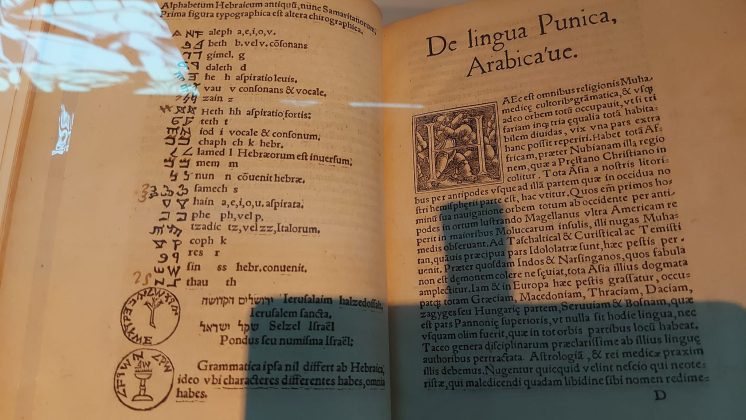 Alphabetum Hebraicum antiquũ, nunc Samaritanorum,
Prima figura typographica est altera chirographica.
aleph a,e,i,o,v.
beth b. velv. cõsonans
gimel. g
daleth d
he h aspiratio leuis.
vau v consonans & vocale,
zain z
Heth hh aspiratio fortis:
teth t
iod i vocale & consonum,
chaph ch k hebr.
lamed l Hebræorum est inuersum;
mem m
nun n cõuenit hebræ,
samech s
hain a,e,i,o,u. aspirata.
phe ph, vel p.
tzadic tz, vel zz, Italorum.
coph k
res r
sin ss hebr, conuenit,
thau th
ירושלים הקדושה Ierusalaim
Ierusalem sancta,
שקל ישראל Selzel Israël
Pondus seu numisma Israël:
Grammatica ipsa nil differt ab Hebraica,
ideo vbi characteres differentes habes, omnia
habes.
De lingua Punica,
Arabica'ue.
HAEc est omnibus religionis Muha-
medicę cultorib9 grãmatica, & vsq;
adeo orbem totũ occupauit, vt si tri
fariam inq; tria ęqualia totã habita-
bilem diuidas, vix vna pars extra
hanc possit reperiri. Habet totã Af-
fricam, præter Nubianam illã regio
nem, quæ a Pręstano Christiano in
colitur. Tota Asia a nostris litori-
bus per antipodes vsque ad illã partem quæ in occidua no
stri hemispherii parte est, hac vtitur. Quos em primos hos-
pites in sua nauigatione orbem totum ab occidente in
orientem lustrando Magellanus vltra Americam re
perit in maioribus Moluccarum insulis, illi nugas Muha-
medis obseruant. Ad Taschalticã & Curistlicã ac Temisti
tanã, quauis præcipua pars Idololatræ sunt, hæc pestis per-
uenit. Præter quosdam Indos & Narsinganos, quos fabula
non est dęmonem colere nescĩuisse, tota Asia illius dogma
amplectitur, Iam & in Europa hæc pestis grassatur, occu-
patq; totam Græciam, Macedoniam, Thraciam, Daciam,
zagyges seu Hungarię partem, Seruiam & Bosnam, quæ
est pars Pannonię superioris, vt nulla sit hodie lingua, nec
vnquam olim fuerit, quæ in tot orbis partibus locũ habeat.
Taceo genera disciplinarum præclarissime ab illius linguę
authoribus pertractata. Astrologiã, & rei medicæ praxim
illis debemus. Nugentur quicquid velint nescio qui neote-
ristæ, qui maledicendi quadam libidine sibi nomen redime-
D